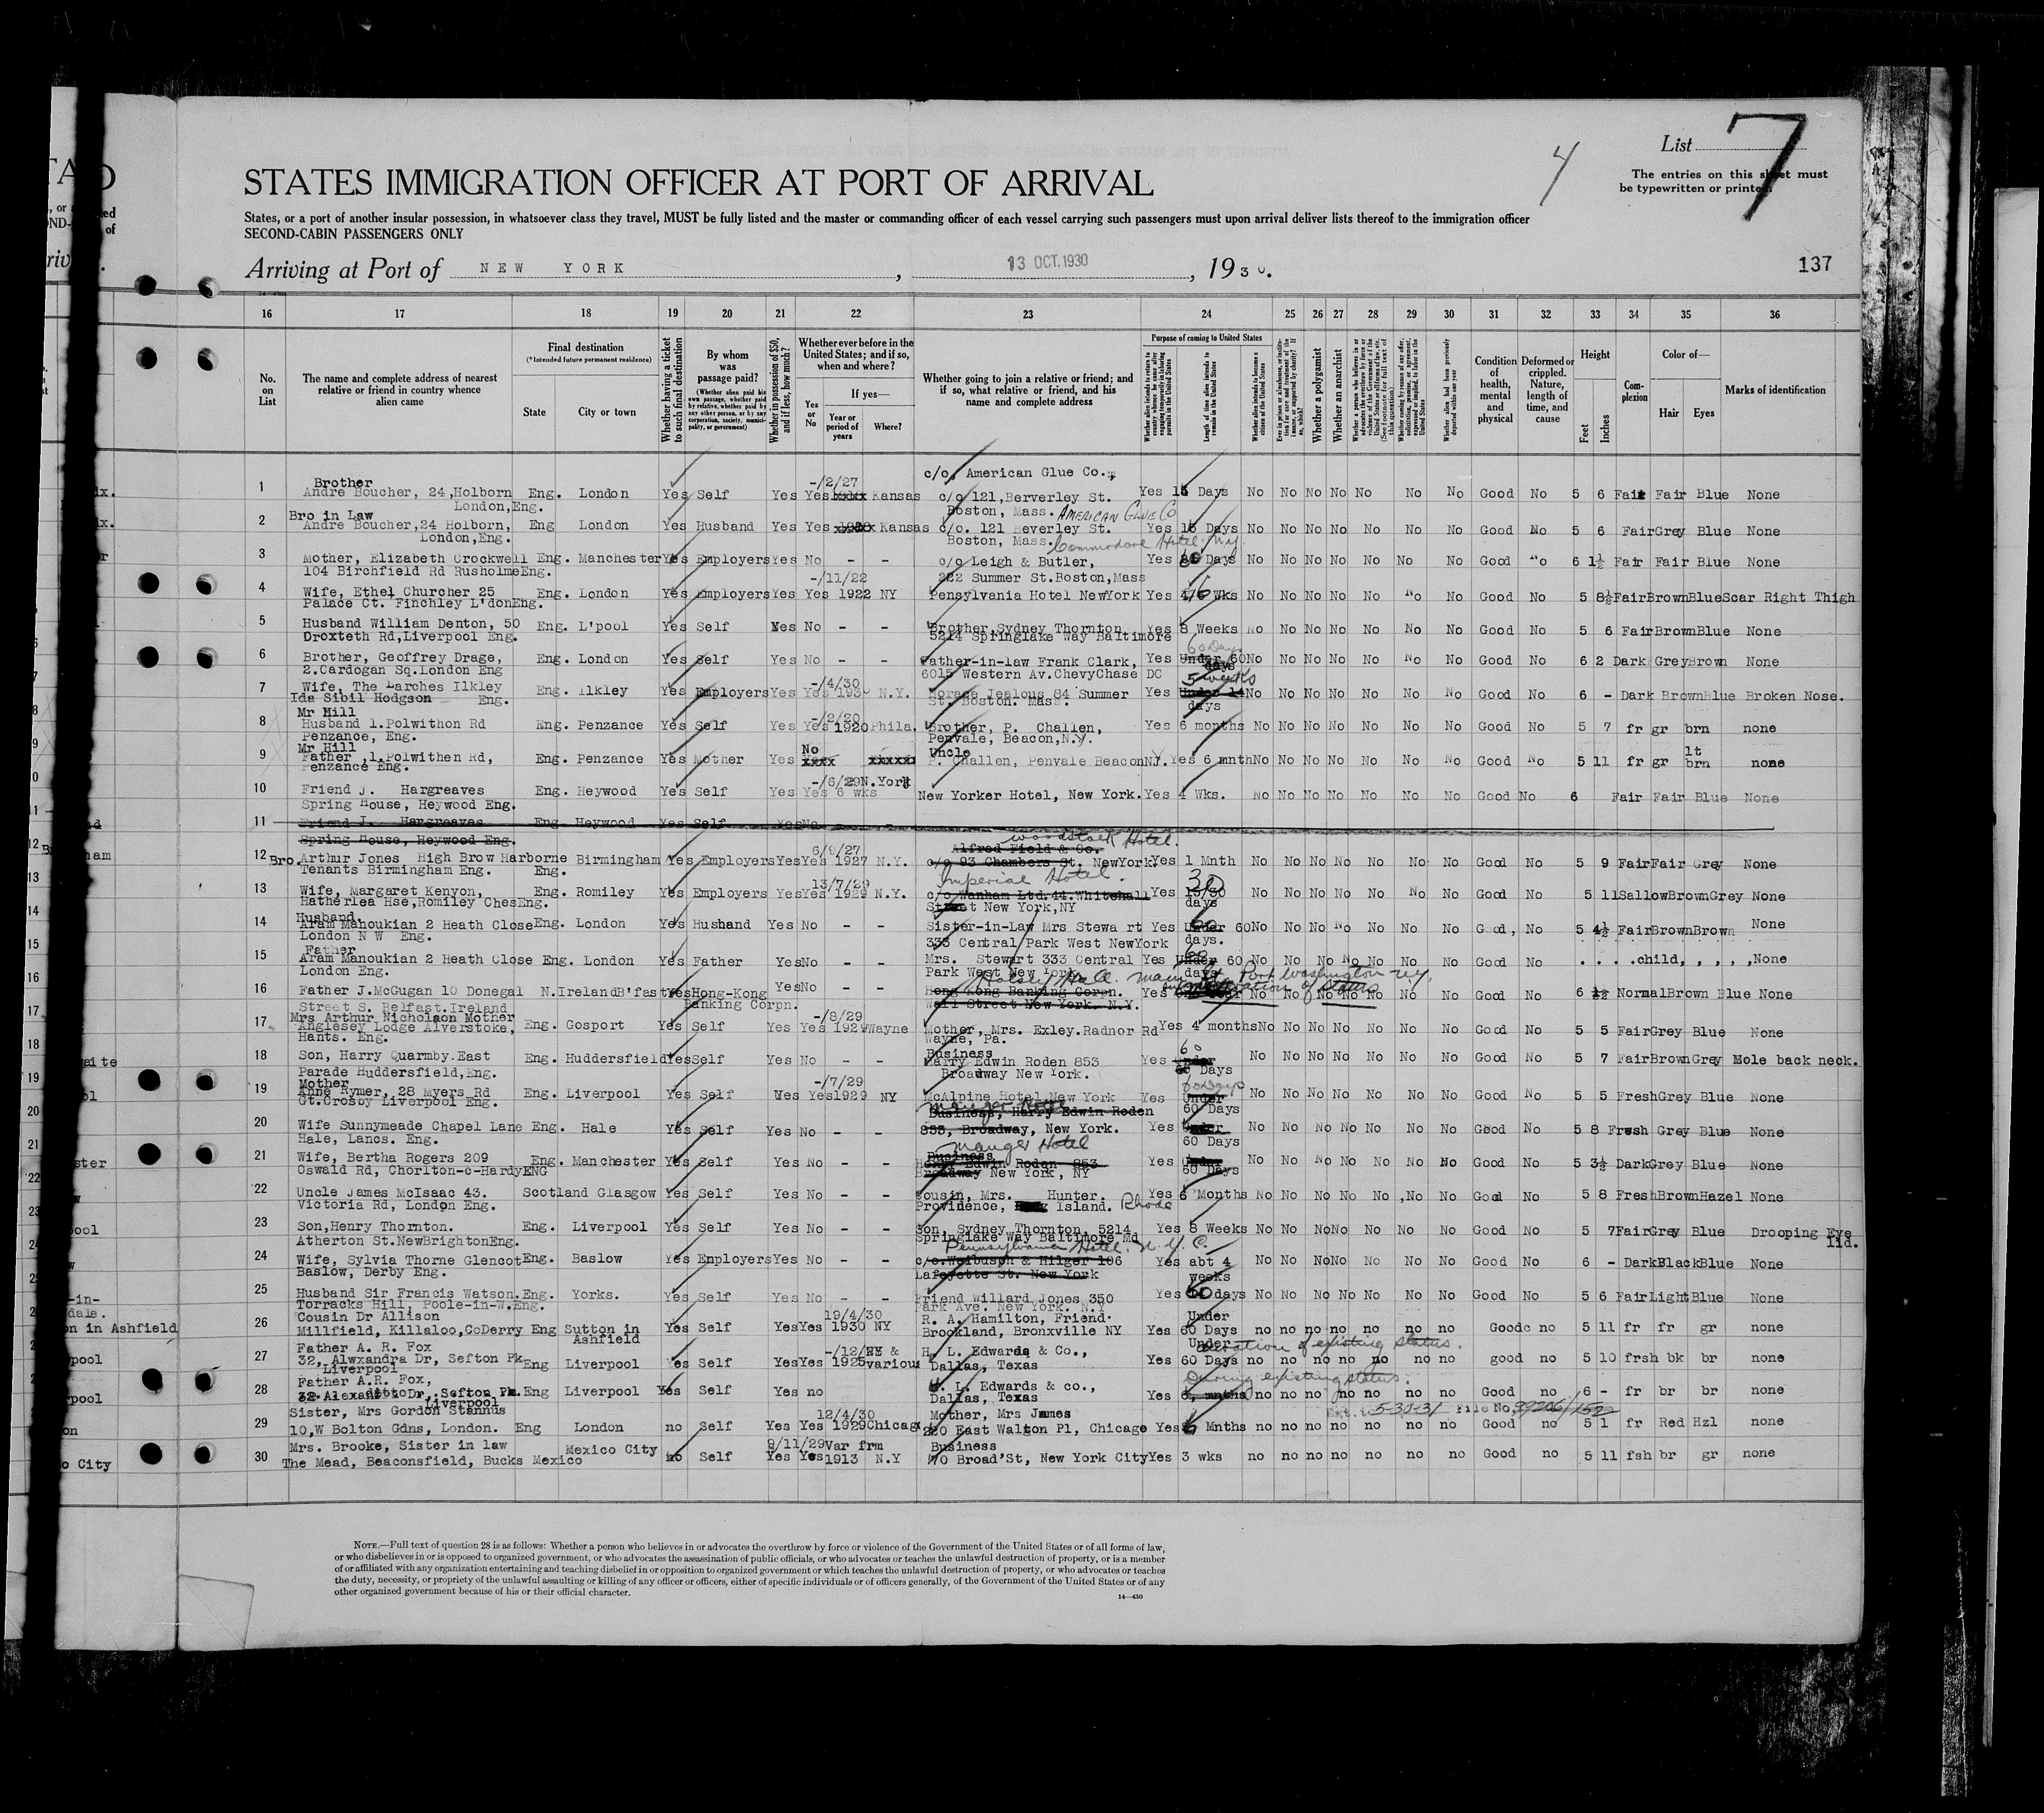 List 7
4
The entries on this sheet must
be typewritten or printed.
STATES IMMIGRATION OFFICER AT PORT OF ARRIVAL
States, or a port of another insular possession, in whatsoever class they travel, MUST be fully listed and the master or commanding officer of each vessel carrying such passengers must upon arrival deliver lists thereof to the immigration officer
SECOND-CABIN PASSENGERS ONLY
Arriving at Port of NEW YORK, 13 OCT. 1930, 1930.
137
16 17 18 19 20 21 22 23 24 25 26 27 28 29 30 31 32 33 34 35 36
No. on List
The name and complete address of nearest relative or friend in country whence alien came
Final destination
(*Intended future permanent residence)
State
City or town
Whether having a ticket to such final destination
By whom was passage paid?
Whether in possession of $50, and if less, how much?
Whether ever before in the United States; and if so, when and where?
Yes or No
If yes—
Year or period of years
Where?
Whether going to join a relative or friend; and if so, what relative or friend, and his name and complete address
Purpose of coming to United States
Length of time alien intends to remain in the United States
Whether a polygamist
Whether an anarchist
Condition of health, mental and physical
Deformed or crippled. Nature, length of time, and cause
Height
Feet
Inches
Complexion
Color of—
Hair
Eyes
Marks of identification
1 Brother -/2/27 c/o, American Glue Co.,
Andre Boucher, 24, Holborn Eng. London Yes Self Yes Yes Kansas c/o 121, Berverley St. Yes 15 Days No No No No No No No Good No 5 6 Fair Fair Blue None
London, Eng. Boston, Mass. AMERICAN GLUE CO
2 Bro in Law
Andre Boucher, 24 Holborn, Eng London Yes Husband Yes Yes Kansas c/o. 121 Beverley St. Yes 15 Days No No No No No No No Good No 5 6 Fair Grey Blue None
London, Eng. Boston, Mass. Commodore Hotel. N.Y.
3 Mother, Elizabeth Crockwell Eng. Manchester Yes Employers Yes No - - c/o Leigh & Butler, Yes Days No No No No No No No Good No 6 1½ Fair Fair Blue None
104 Birchfield Rd Rusholme Eng. -/11/22 222 Summer St. Boston, Mass
4 Wife, Ethel Churcher 25 Eng. London Yes Employers Yes Yes 1922 NY Pensylvania Hotel NewYork Yes 4/6 Wks No No No No No No No Good No 5 8½ Fair Brown Blue Scar Right Thigh
Palace Ct. Finchley L'don Eng.
5 Husband William Denton, 50 Eng. L'pool Yes Self Yes No - - Brother Sydney Thornton Yes 8 Weeks No No No No No No No Good No 5 6 Fair Brown Blue None
Croxteth Rd, Liverpool Eng. 5214 Springlake Way Baltimore
6 Brother, Geoffrey Drage, Eng. London Yes Self Yes No - - Father-in-law Frank Clark, Yes Under 60 days 60 Days No No No No No No No Good No 6 2 Dark Grey Brown None
2. Cardogan Sq. London Eng 6015 Western Av. ChevyChase DC
7 Wife, The Larches Ilkley Eng. Ilkley Yes Employers Yes Yes -/4/30 1930 N.Y. Horace Jealous 84 Summer Yes Under 14 days 5 weeks No No No No No No No Good No 6 - Dark Brown Blue Broken Nose.
Ida Sibil Hodgson Eng. St. Boston. Mass.
8 Mr Hill -/2/20
Husband 1. Polwithon Rd Eng. Penzance Yes Self Yes Yes 1920 Phila. Brother, P. Challen, Yes 6 months No No No No No No No Good No 5 7 fr gr brn none
Penzance, Eng. Penvale, Beacon, N.Y.
9 Mr Hill No Uncle
Father, 1. Polwithen Rd, Eng. Penzance Yes Mother Yes P. Challen, Penvale Beacon N.Y. Yes 6 mnth No No No No No No No Good No 5 11 fr gr lt brn none
Penzance Eng.
10 -/6/29 N.York
Friend J. Hargreaves Eng. Heywood Yes Self Yes Yes 6 wks New Yorker Hotel, New York. Yes 4 Wks. No No No No No No No Good No 6 Fair Fair Blue None
Spring House, Heywood Eng.
11 Friend J. Hargreaves Eng. Heywood Yes Self Yes No
Spring House, Heywood Eng. Woodstock Hotel.
12 6/9/27 Alfred Field & Co.
Bro. Arthur Jones High Brow Harborne Birmingham Yes Employers Yes Yes 1927 N.Y. c/o 93 Chambers St. NewYork Yes 1 Mnth No No No No No No No Good No 5 9 Fair Fair Grey None
Tenants Birmingham Eng. Eng. Imperial Hotel.
13 Wife, Margaret Kenyon, Eng. Romiley Yes Employers Yes Yes 13/7/29 1929 N.Y. c/o Wanham Ltd. 44. Whitehall Yes 15/30 days 30 No No No No No No No Good No 5 11 Sallow Brown Grey None
Hatherlea Hse, Romiley Ches Eng. Street New York, NY
14 Husband
Aram Manoukian 2 Heath Close Eng. London Yes Husband Yes No - - Sister-in-Law Mrs Stewart Yes Under 60 days. No No No No No No No Good, No 5 4½ Fair Brown Brown None
London N W Eng. 333 Central Park West NewYork
15 Father
Aram Manoukian 2 Heath Close Eng. London Yes Father Yes No - - Mrs. Stewart 333 Central Yes Under 60 days No No No No No No No Good, No child, None
London Eng. Park West New York
16 Father J. McGugan 10 Donegal N.Ireland B'fast Yes Hong-Kong Banking Corpn. Yes No - - Hong Kong Banking Corpn. Yes No No No No No No No Good No 6 Normal Brown Blue None
Street S. Belfast. Ireland Wall Street New York. N.Y. Port Washington N.Y. of status
17 Mrs Arthur Nicholson Mother -/8/29
Anglesey Lodge Alverstoke, Eng. Gosport Yes Self Yes Yes 1929 Wayne Mother, Mrs. Exley. Radnor Rd Yes 4 months No No No No No No No Good No 5 5 Fair Grey Blue None
Hants. Eng. Wayne, Pa.
18 Son, Harry Quarmby. East Eng. Huddersfield Yes Self Yes No - - Business Harry Edwin Roden 853 Yes Under 60 Days No No No No No No No Good No 5 7 Fair Brown Grey Mole back neck.
Parade Huddersfield, Eng. Broadway New York.
19 Mother -/7/29
Anne Rymer, 28 Myers Rd Eng. Liverpool Yes Self Yes Yes 1929 NY McAlpine Hotel New York Yes Under 60 Days 60 Days No No No No No No No Good No 5 5 Fresh Grey Blue None
Gt. Crosby Liverpool Eng. Manger Hotel
20 Business, Harry Edwin Roden
Wife Sunnymeade Chapel Lane Eng. Hale Yes Self Yes No - - 853, Broadway, New York. Yes Under 60 Days No No No No No No No Good No 5 8 Fresh Grey Blue None
Hale, Lancs. Eng. Manger Hotel
21 Wife, Bertha Rogers 209 Eng. Manchester Yes Self Yes No - - Business Henry Edwin Roden 853 Yes Under 60 Days No No No No No No No Good No 5 3½ Dark Grey Blue None
Oswald Rd, Chorlton-c-Hardy ENG Broadway New York, NY
22 Uncle James McIsaac 43. Scotland Glasgow Yes Self Yes No - - Cousin, Mrs. Hunter. Yes 6 Months No No No No No No No Good No 5 8 Fresh Brown Hazel None
Victoria Rd, London Eng. Providence, Island. Rhode
23 Son, Henry Thornton. Eng. Liverpool Yes Self Yes No - - Son, Sydney Thornton, 5214 Yes 8 Weeks No No No No No No No Good No 5 7 Fair Grey Blue Drooping Eye lid.
Atherton St. NewBrighton Eng. Springlake Way Baltimore Md
Pennsylvania Hotel. N.Y.C.
24 Wife, Sylvia Thorne Glencot Eng. Baslow Yes Employers Yes No - - c/o. Weibusch & Hilger 106 Yes abt 4 weeks No No No No No No No Good No 6 - Dark Black Blue None
Baslow, Derby Eng. Lafayette St. New York
25 Husband Sir Francis Watson. Eng. Yorks. Yes Self Yes No - - Friend Willard Jones 350 Yes 60 days No No No No No No No Good No 5 6 Fair Light Blue None
Torracks Hill, Poole-in-W. Eng. Park Ave. New York. N.Y
26 Cousin Dr Allison 19/4/30 R. A. Hamilton, Friend. Under
Millfield, Killaloo, CoDerry Eng Sutton in Ashfield Yes Self Yes Yes 1930 NY Brookland, Bronxville NY Yes 60 Days no no no no no no no Good no 5 11 fr fr gr none
27 Father A. R. Fox -/12/25 NY & H. L. Edwards & Co., Under of existing status.
32, Alwxandra Dr, Sefton Pk Eng Liverpool Yes Self Yes Yes 1925 various Dallas, Texas Yes 60 Days no no no no no no no good no 5 10 frsh bk br none
Liverpool
28 Father A.R. Fox, H. L. Edwards & co., During existing status.
32 Alexandra Dr, Sefton Pk. Eng Liverpool Yes Self Yes no Dallas, Texas Yes 6, mnths no no no no no no no Good no 6 - fr br br none
Liverpool
29 Sister, Mrs Gordon Stannus 12/4/30 Mother, Mrs James 5-30-31 File No. 99206/152
10, W Bolton Gdns, London. Eng London no Self Yes Yes 1929 Chicago 220 East Walton Pl, Chicago Yes 6 Mnths no no no no no no no Good no 5 1 fr Red Hzl none
30 Mrs. Brooke, Sister in law Mexico City 9/11/29 Var frm Business
The Mead, Beaconsfield, Bucks Mexico no Self Yes Yes 1913 N.Y 70 Broad'St, New York City Yes 3 wks no no no no no no no Good no 5 11 fsh br gr none
NOTE.—Full text of question 28 is as follows: Whether a person who believes in or advocates the overthrow by force or violence of the Government of the United States or of all forms of law,
or who disbelieves in or is opposed to organized government, or who advocates the assassination of public officials, or who advocates or teaches the unlawful destruction of property, or is a member
of or affiliated with any organization entertaining and teaching disbelief in or opposition to organized government or which teaches the unlawful destruction of property, or who advocates or teaches
the duty, necessity, or propriety of the unlawful assaulting or killing of any officer or officers, either of specific individuals or of officers generally, of the Government of the United States or of any
other organized government because of his or their official character.
14—430